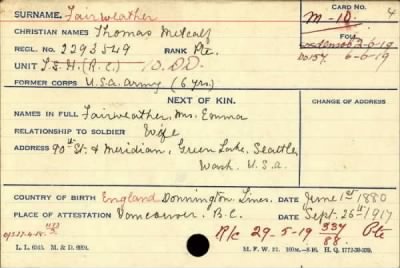 SURNAME. Fairweather
CARD NO.
4
CHRISTIAN NAMES Thomas Metcalf
M-10.
FOLL.
REGL. NO. 2293549 RANK Pte.
2-6-19
6-6-19
UNIT L.S.H. (R.C.) O.D.D.
FORMER CORPS U.S.A. Army (6 yrs)
NEXT OF KIN.
CHANGE OF ADDRESS
NAMES IN FULL Fairweather, Mrs. Emma
RELATIONSHIP TO SOLDIER Wife
ADDRESS 90th St. & Meridian, Green Lake, Seattle,
Wash. U.S.A.
COUNTRY OF BIRTH England Donnington Lines. DATE June 1st 1880
PLACE OF ATTESTATION Vancouver, B.C. DATE Sept. 26th 1917
R/c 29-5-19 337/88 Pte
L. L. M. & D.
M. F. W. H. Q.